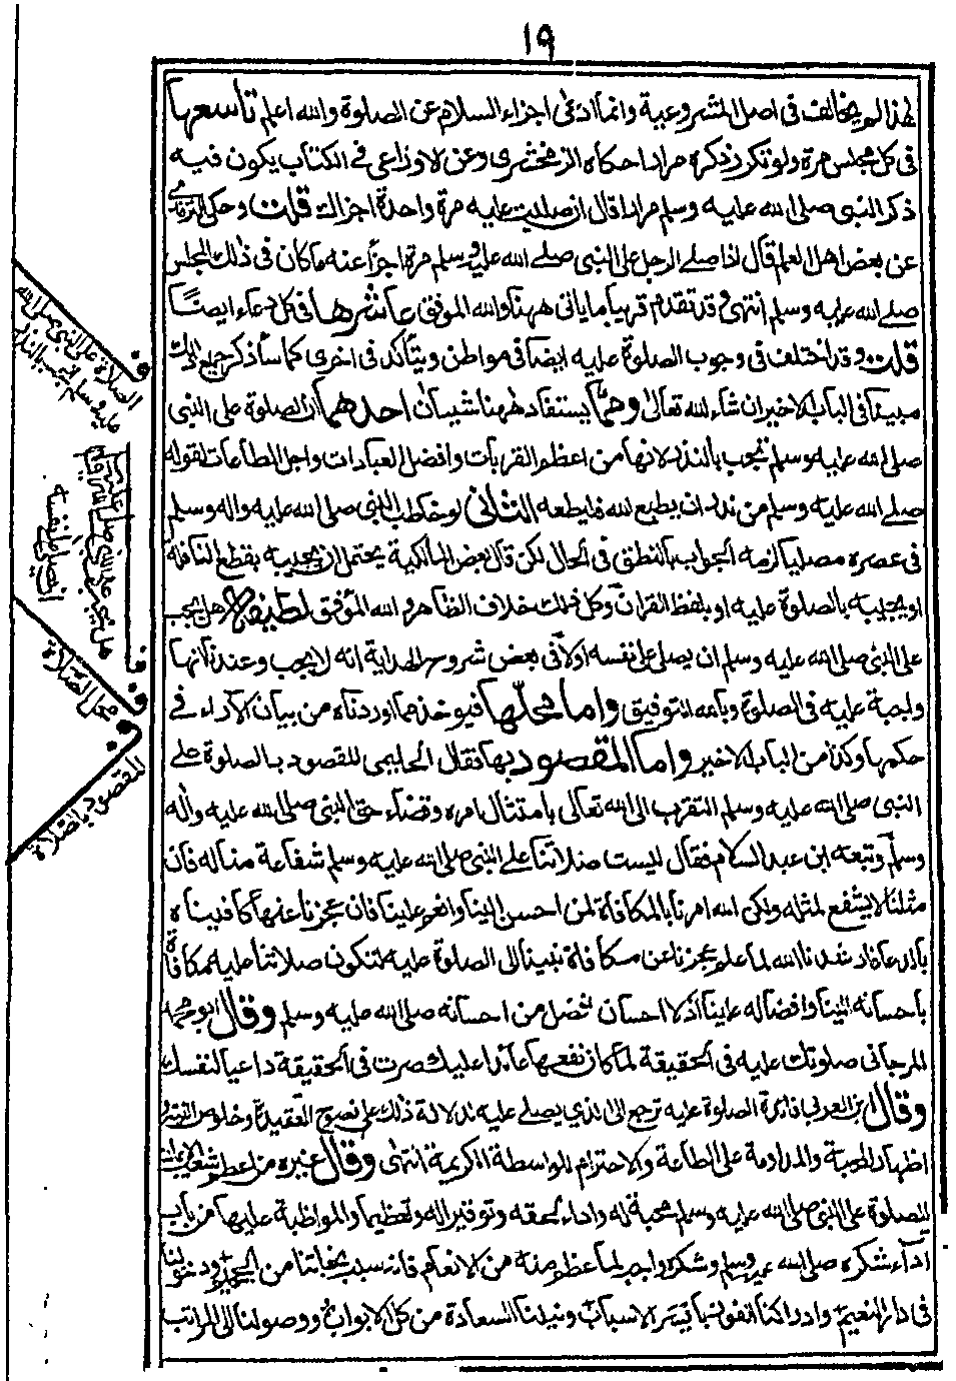 ١٩
لهذا لم يخالف فى اصل المشروعية وانما ادعى اجزاء السلام عن الصلوة والله اعلم تاسعها
فى كل مجلس مرة ولو تكرر ذكره مرارا حكاه الزمخشرى وعن الاوزاعى فى الكتاب يكون فيه
ذكر النبى صلى الله عليه وسلم مرارا قال ان صليت عليه مرة واحدة اجزاك قلت وحكى الترمذى
عن بعض اهل العلم قال اذا صلے الرجل على النبى صلے الله عليه وسلم مرة اجزأ عنه ما كان فى ذلك المجلس
صلے الله عليه وسلم انتهى وقد تقدم قريبا ماياتى ههنا والله الموفق عاشرها فى كل دعاء ايضًا
قلت وقد اختلف فى وجوب الصلوة عليه ايضا فى مواطن ويتأكد فى اخرى كما سأذكر جميع ذلك
مبينا فى الباب الاخير ان شاء الله تعالى ومما يستفاد ههنا شيئان احدهما ان الصلوة على النبى
صلى الله عليه وسلم تجب بالنذر لانها من اعظم القربات وافضل العبادات واجل الطاعات لقوله
صلے الله عليه وسلم من نذر ان يطيع الله فليطعه الثانى لو خاطب النبى صلى الله عليه واله وسلم
فى عصره مصليا لزمه الجواب بالنطق فى الحال لكن قال بعض المالكية يحتمل ان يجيبه بقطع النافلة
او يجيبه بالصلوة عليه او بلفظ القران وكل ذلك خلاف الظاهر والله الموفق لطيفة هل يجب
على النبى صلى الله عليه وسلم ان يصلى على نفسه اولا فى بعض شروح الهداية انه لا يجب وعندنا انها
واجبة عليه فى الصلوة وبالله التوفيق واما محلها فيوخذ مما اوردناه من بيان الآراء فى
حكمها وكذا من الباب الاخير واما المقصود بها فقال الحليمى المقصود بالصلوة على
النبى صلى الله عليه وسلم التقرب الى الله تعالى بامتثال امره وقضاء حق النبى صلى الله عليه واله
وسلم وتبعه ابن عبد السلام فقال ليست صلاتنا على النبى صلى الله عليه وسلم شفاعة منا له فان
مثلنا لا يشفع لمثله ولكن الله امرنا بالمكافاة لمن احسن الينا وانعم علينا فان عجزنا عنها كافيناه
بالدعاء فارشدنا الله لما علم عجزنا عن مكافاة نبينا الى الصلوة عليه لتكون صلاتنا عليه مكافاة
باحسانه الينا وافضاله علينا اذ لا احسان افضل من احسانه صلى الله عليه وسلم وقال ابو محمد
المرجانى صلوتك عليه فى الحقيقة لما كان نفعها عائدا عليك صرت فى الحقيقة داعيا لنفسك
وقال ابن العربى فائدة الصلوة عليه ترجع الى الذى يصلے عليه لدلالة ذلك على نصوح العقيدة وخلوص النية و
اظهار المحبة والمداومة على الطاعة والاحترام للواسطة الكريمة انتهى وقال غيره من اعظم شعب الايمان
الصلوة على النبى صلى الله عليه وسلم محبة له واداء لحقه وتوقيرا له وتعظيما والمواظبة عليها من باب
اداء شكره صلى الله عليه وسلم وشكره واجب لما عظم منه من الانعام فانه سبب نجاتنا من الجحيم ودخولنا
فى دار النعيم وادراكنا الفوز بايسر الاسباب ونيلنا السعادة من كل الابواب ووصولنا الى المراتب
ف
الصلاة على النبى صلى الله
عليه وسلم تجب بالنذر
ف
هل يجب على النبى صلى الله عليه وسلم
ان يصلى على نفسه
ف
محل الصلاة
ف
المقصود بالصلاة